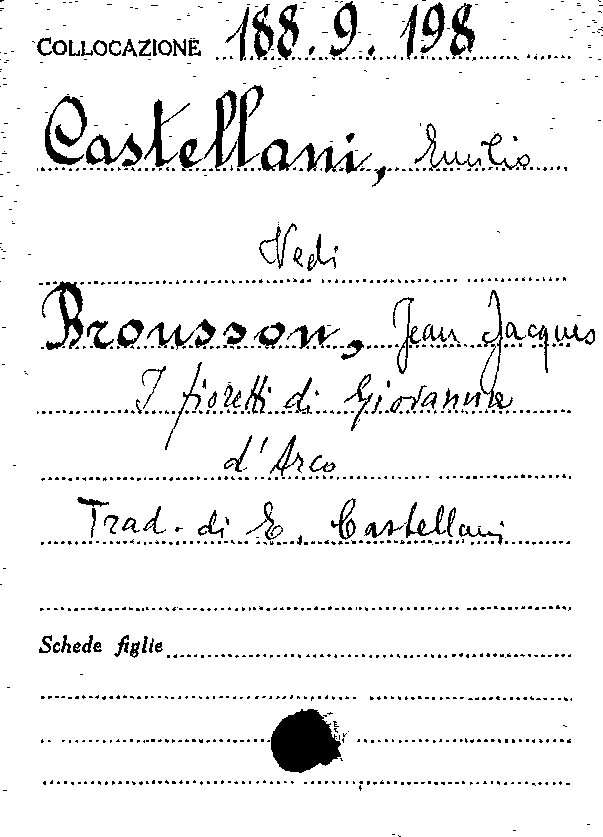 COLLOCAZIONE 188.9.198
Castellani, Emilio
Vedi
Brousson, Jean Jacques
I fioretti di Giovanna
d'Arco
Trad. di E. Castellani
Schede figlie